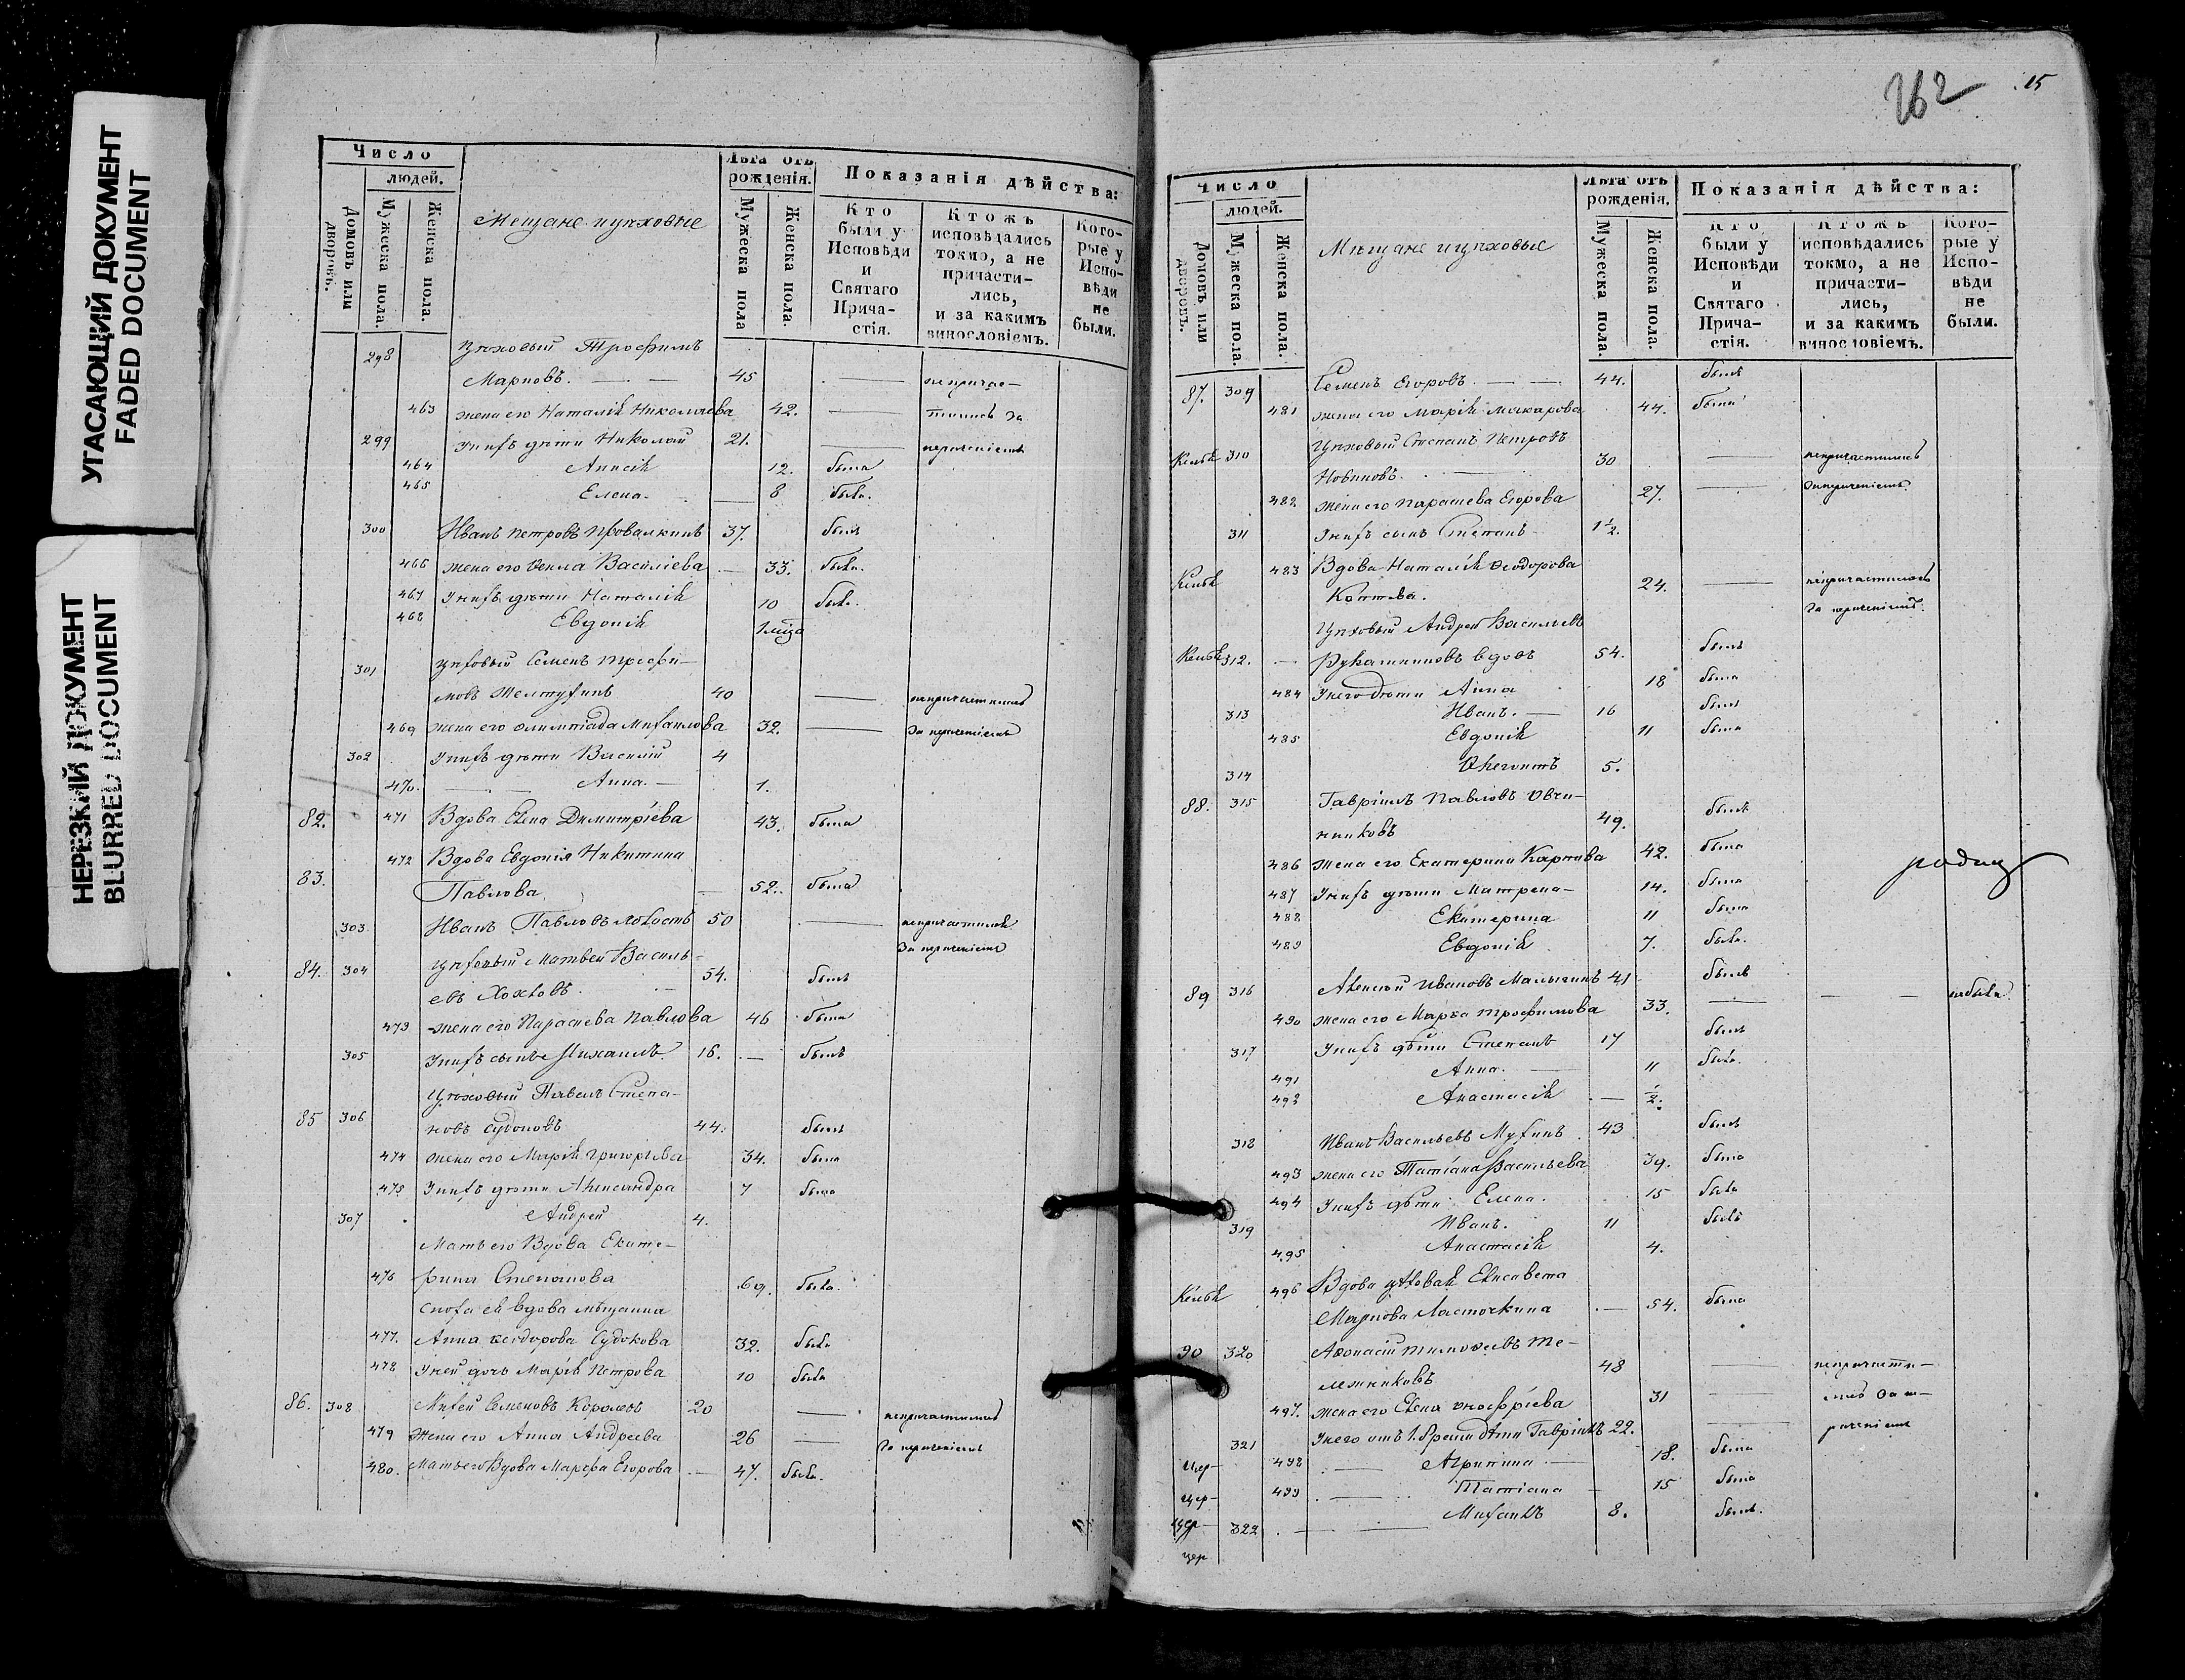 УГАСАЮЩИЙ ДОКУМЕНТ
FADED DOCUMENT
НЕРЕЗКИЙ ДОКУМЕНТ
BLURRED DOCUMENT
Число
людей.
Домовъ или дворовъ.
Мужеска пола.
Женска пола.
Мещане и цѣховые
Лѣта отъ рожденія.
Мужеска пола
Женска пола.
Показанія дѣйства:
Кто были у Исповѣди и Святаго Прича-стія.
Ктожъ исповѣдались токмо, а не причасти-лись, и за какимъ винословіемъ.
Кото-рые у Испо-вѣди не были.
298 Цѣховый Трофимъ
Марковъ. 45 непричас-
463 жена его Наталія Николаева 42. тились за
299 У нихъ дѣти Николай 21. нерачениемъ
464 Анисія 12. была
465 Елена. 8 была.
300 Иванъ Петровъ Провалкинъ 37. былъ
466 жена его Фекла Василіева 33. была.
467 У нихъ дѣти Наталія 10 была.
468 Евдокія 1 мѣца
301 Цѣховый Семенъ Трофи-
мовъ Желтухинъ 40 непричастились
469 жена его Олимпіада Михаилова 32. За нерачениемъ
302 У нихъ дѣти Василій 4
470. Анна. 1.
82. 471 Вдова Елена Димитріева 43. была
472 Вдова Евдокія Никитина
83. Павлова 52. была
303 Иванъ Павловъ 50 непричастился
За нерачениемъ
84. 304 Цѣховый Матвей Василь-
евъ Хохловъ 54. былъ
473 жена его Параскева Павлова 46 была
305 У нихъ сынъ Михаилъ 16. былъ
Цѣховый Павелъ Степа-
85 306 новъ Судоковъ 44. былъ
474 жена его Марія Григорьева 34. была
475 У нихъ дѣти Александра 7 была
307 Андрей 4.
Мать его Вдова Екате-
476 рина Степанова 69. была.
сноха ея вдова мѣщанка
477. Анна Ѳеодорова Судокова 32. была
478 У ней дочь Марія Петрова 10 была
86. 308 Михей Семеновъ Королевъ 20 непричастились
479 Жена его Анна Андреева 26 За нерачениемъ
480. Мать его Вдова Марѳа Егорова 47. была.
262 15
Число
людей.
Домовъ или дворовъ.
Мужеска пола.
Женска пола.
Мѣщане и цѣховые
Лѣта отъ рожденія.
Мужеска пола.
Женска пола.
Показанія дѣйства:
Кто были у Исповѣди и Святаго Прича-стія.
Ктожъ исповѣдались токмо, а не причасти-лись, и за какимъ винословіемъ.
Кото-рые у Испо-вѣди не были.
87. 309 Семенъ Егоровъ. 44. былъ
481 жена его Марія Макарова 44. была
Цѣховый Степанъ Петровъ
Келья 310 Новиковъ. 30 непричастились
482 жена его Параскева Егорова 27. За нерачениемъ
311 У нихъ сынъ Степанъ 1 1/2.
483 Вдова Наталія Ѳеодорова
Келья Коптева. 24. непричастилась
За нерачениемъ.
Цѣховый Андрей Васильевъ
Келья 312. Рукавишниковъ вдовъ 54. былъ
484 У него дѣти Анна 18 была
313 Иванъ. 16 былъ
485 Евдокія 11 была
314 5.
88. 315 Гавріилъ Павловъ Овчи-
нниковъ 49. былъ
486 жена его Екатерина Карпова 42. была
487 У нихъ дѣти Матрена 14. была
488 Екатерина 11 была
489 Евдокія 7. была.
89 316 Алексѣй Ивановъ Малыгинъ 41 былъ
490 жена его Марѳа Трофимова 33. небыла.
317 У нихъ дѣти Степанъ 17 былъ
491 Анна. 11 была.
492 Анастасія 1/2.
318 Иванъ Васильевъ Мухинъ 43 былъ
493 жена его Татіана Васильева 39. была
494 У нихъ дѣти Елена. 15 была
319 Иванъ. 11 былъ
495 Анастасія 4.
Келья 496 Вдова цѣховая Елисавета
Маркова Ласточкина 54. была
90 320 Аѳонасій Тимоѳеевъ Те-
лѣжниковъ 48 непричасти-
497. жена его Елена Онофріева 31 лись за не-
321 У него отъ 1. брака дѣти Гавріилъ 22. рачениемъ
цер- 498 Агрипина 18. была
цер- 499 Татіана 15 была
цер- 322 Михаилъ 8. былъ.
цер